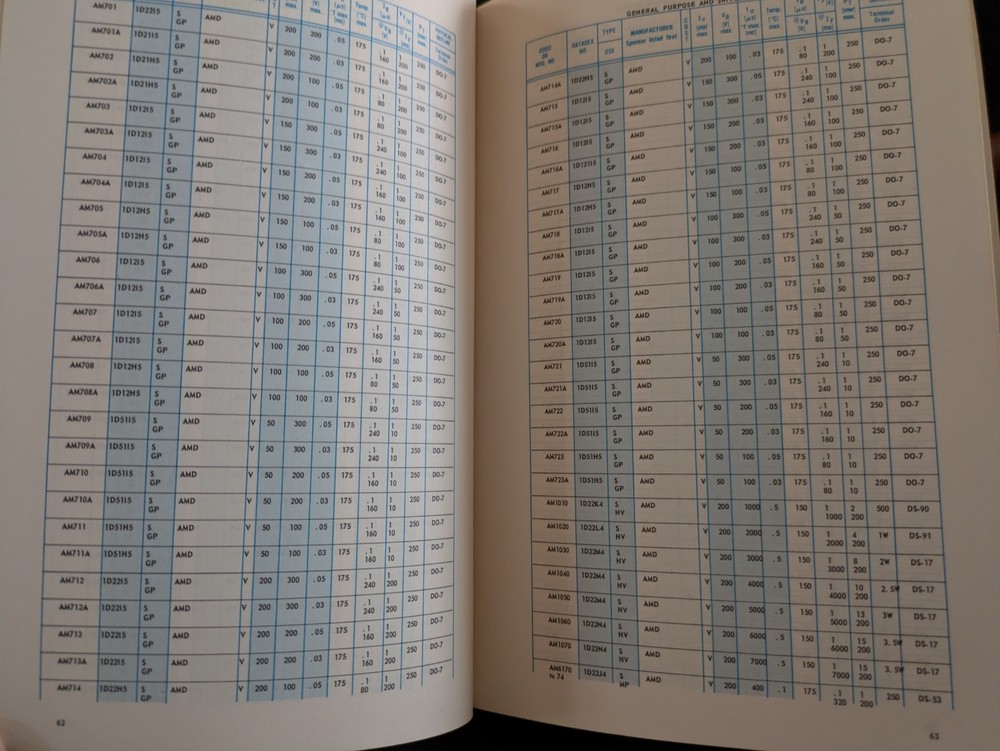 GENERAL PURPOSE AND
DATADEX NO. TYPE USE MANUFACTURER Sponsor listed first COST
AM701 1D22I5 S GP AMD V 200 200 .05 175 .1 160 1 200 250 DO-7
AM701A 1D21I5 S GP AMD V 200 200 .03 175 .1 160 1 200 250 DO-7
AM702 1D21H5 S GP AMD V 200 100 .05 175 .1 80 1 200 250 DO-7
AM702A 1D21H5 S GP AMD V 200 100 .03 175 .1 80 1 200 250 DO-7
AM703 1D12I5 S GP AMD V 150 300 .05 175 .1 240 1 100 250 DO-7
AM703A 1D12I5 S GP AMD V 150 300 .03 175 .1 240 1 100 250 DO-7
AM704 1D12I5 S GP AMD V 150 200 .05 175 .1 160 1 100 250 DO-7
AM704A 1D12I5 S GP AMD V 150 200 .03 175 .1 160 1 100 250 DO-7
AM705 1D12H5 S GP AMD V 150 100 .05 175 .1 80 1 100 250 DO-7
AM705A 1D12H5 S GP AMD V 150 100 .03 175 .1 80 1 100 250 DO-7
AM706 1D12I5 S GP AMD V 100 300 .05 175 .1 240 1 50 250 DO-7
AM706A 1D12I5 S GP AMD V 100 300 .03 175 .1 240 1 50 250 DO-7
AM707 1D12I5 S GP AMD V 100 200 .05 175 .1 160 1 50 250 DO-7
AM707A 1D12I5 S GP AMD V 100 200 .03 175 .1 160 1 50 250 DO-7
AM708 1D12H5 S GP AMD V 100 100 .05 175 .1 80 1 50 250 DO-7
AM708A 1D12H5 S GP AMD V 100 100 .03 175 .1 80 1 50 250 DO-7
AM709 1D51I5 S GP AMD V 50 300 .05 175 .1 240 1 10 250 DO-7
AM709A 1D51I5 S GP AMD V 50 300 .03 175 .1 240 1 10 250 DO-7
AM710 1D51I5 S GP AMD V 50 200 .05 175 .1 160 1 10 250 DO-7
AM710A 1D51I5 S GP AMD V 50 200 .03 175 .1 160 1 10 250 DO-7
AM711 1D51H5 S GP AMD V 50 100 .05 175 .1 160 1 10 250 DO-7
AM711A 1D51H5 S GP AMD V 50 100 .03 175 .1 160 1 10 250 DO-7
AM712 1D22I5 S GP AMD V 200 300 .05 175 .1 240 1 200 250 DO-7
AM712A 1D22I5 S GP AMD V 200 300 .03 175 .1 240 1 200 250 DO-7
AM713 1D22I5 S GP AMD V 200 200 .05 175 .1 160 1 200 250 DO-7
AM713A 1D22I5 S GP AMD V 200 200 .03 175 .1 160 1 200 250 DO-7
AM714 1D22H5 S GP AMD V 200 100 .05 175 .1 80 1 200 250 DO-7
62
AM714A 1D22H5 S GP AMD V 200 100 .03 175 .1 80 1 200 250 DO-7
AM715 1D12I5 S GP AMD V 150 300 .05 175 .1 240 1 100 250 DO-7
AM715A 1D12I5 S GP AMD V 150 300 .03 175 .1 240 1 100 250 DO-7
AM716 1D12I5 S GP AMD V 150 200 .05 175 .1 160 1 100 250 DO-7
AM716A S GP AMD V 150 200 .03 175 .1 160 1 100 250 DO-7
AM717 1D12H5 S GP AMD V 150 100 .05 175 .1 80 1 100 250 DO-7
AM717A 1D12H5 S GP AMD V 150 100 .03 175 .1 80 1 100 250 DO-7
AM718 1D12I5 S GP AMD V 100 300 .05 175 .1 240 1 50 250 DO-7
AM718A 1D12I5 S GP AMD V 100 300 .03 175 .1 240 1 50 250 DO-7
AM719 1D12I5 S GP AMD V 100 200 .05 175 .1 160 1 50 250 DO-7
AM719A 1D12I5 S GP AMD V 100 200 .03 175 .1 160 1 50 250 DO-7
AM720 1D12I5 S GP AMD V 100 100 .05 175 .1 80 1 50 250 DO-7
AM720A 1D12I5 S GP AMD V 100 100 .03 175 .1 80 1 50 250 DO-7
AM721 1D51I5 S GP AMD V 50 300 .05 175 .1 240 1 10 250 DO-7
AM721A 1D51I5 S GP AMD V 50 300 .03 175 .1 240 1 10 250 DO-7
AM722 1D51I5 S GP AMD V 50 200 .05 175 .1 160 1 10 250 DO-7
AM722A 1D51I5 S GP AMD V 50 200 .03 175 .1 160 1 10 250 DO-7
AM723 1D51H5 S GP AMD V 50 100 .05 175 .1 80 1 10 250 DO-7
AM723A 1D51H5 S GP AMD V 50 100 .03 175 .1 80 1 10 250 DO-7
AM1010 1D22K4 S HV AMD V 200 1000 .5 150 1 1000 2 200 500 DS-90
AM1020 1D22L4 S HV AMD V 200 2000 .5 150 1 2000 4 200 1W DS-91
AM1030 1D22M4 S HV AMD V 200 3000 .5 150 1 3000 8 200 2W DS-17
AM1040 1D22M4 S HV AMD V 200 4000 .5 150 1 4000 10 200 2.5W DS-17
AM1050 1D22M4 S HV AMD V 200 5000 .5 150 1 5000 13 200 3W DS-17
AM1060 1D22N4 S HV AMD V 200 6000 .5 150 1 6000 15 200 3.5W DS-17
AM1070 1D22N4 S HV AMD V 200 7000 .5 150 1 7000 15 200 3.5W DS-17
AM6170 to 74 1D22J4 S MP AMD V 200 400 .1 175 .1 320 1 200 250 DS-53
63